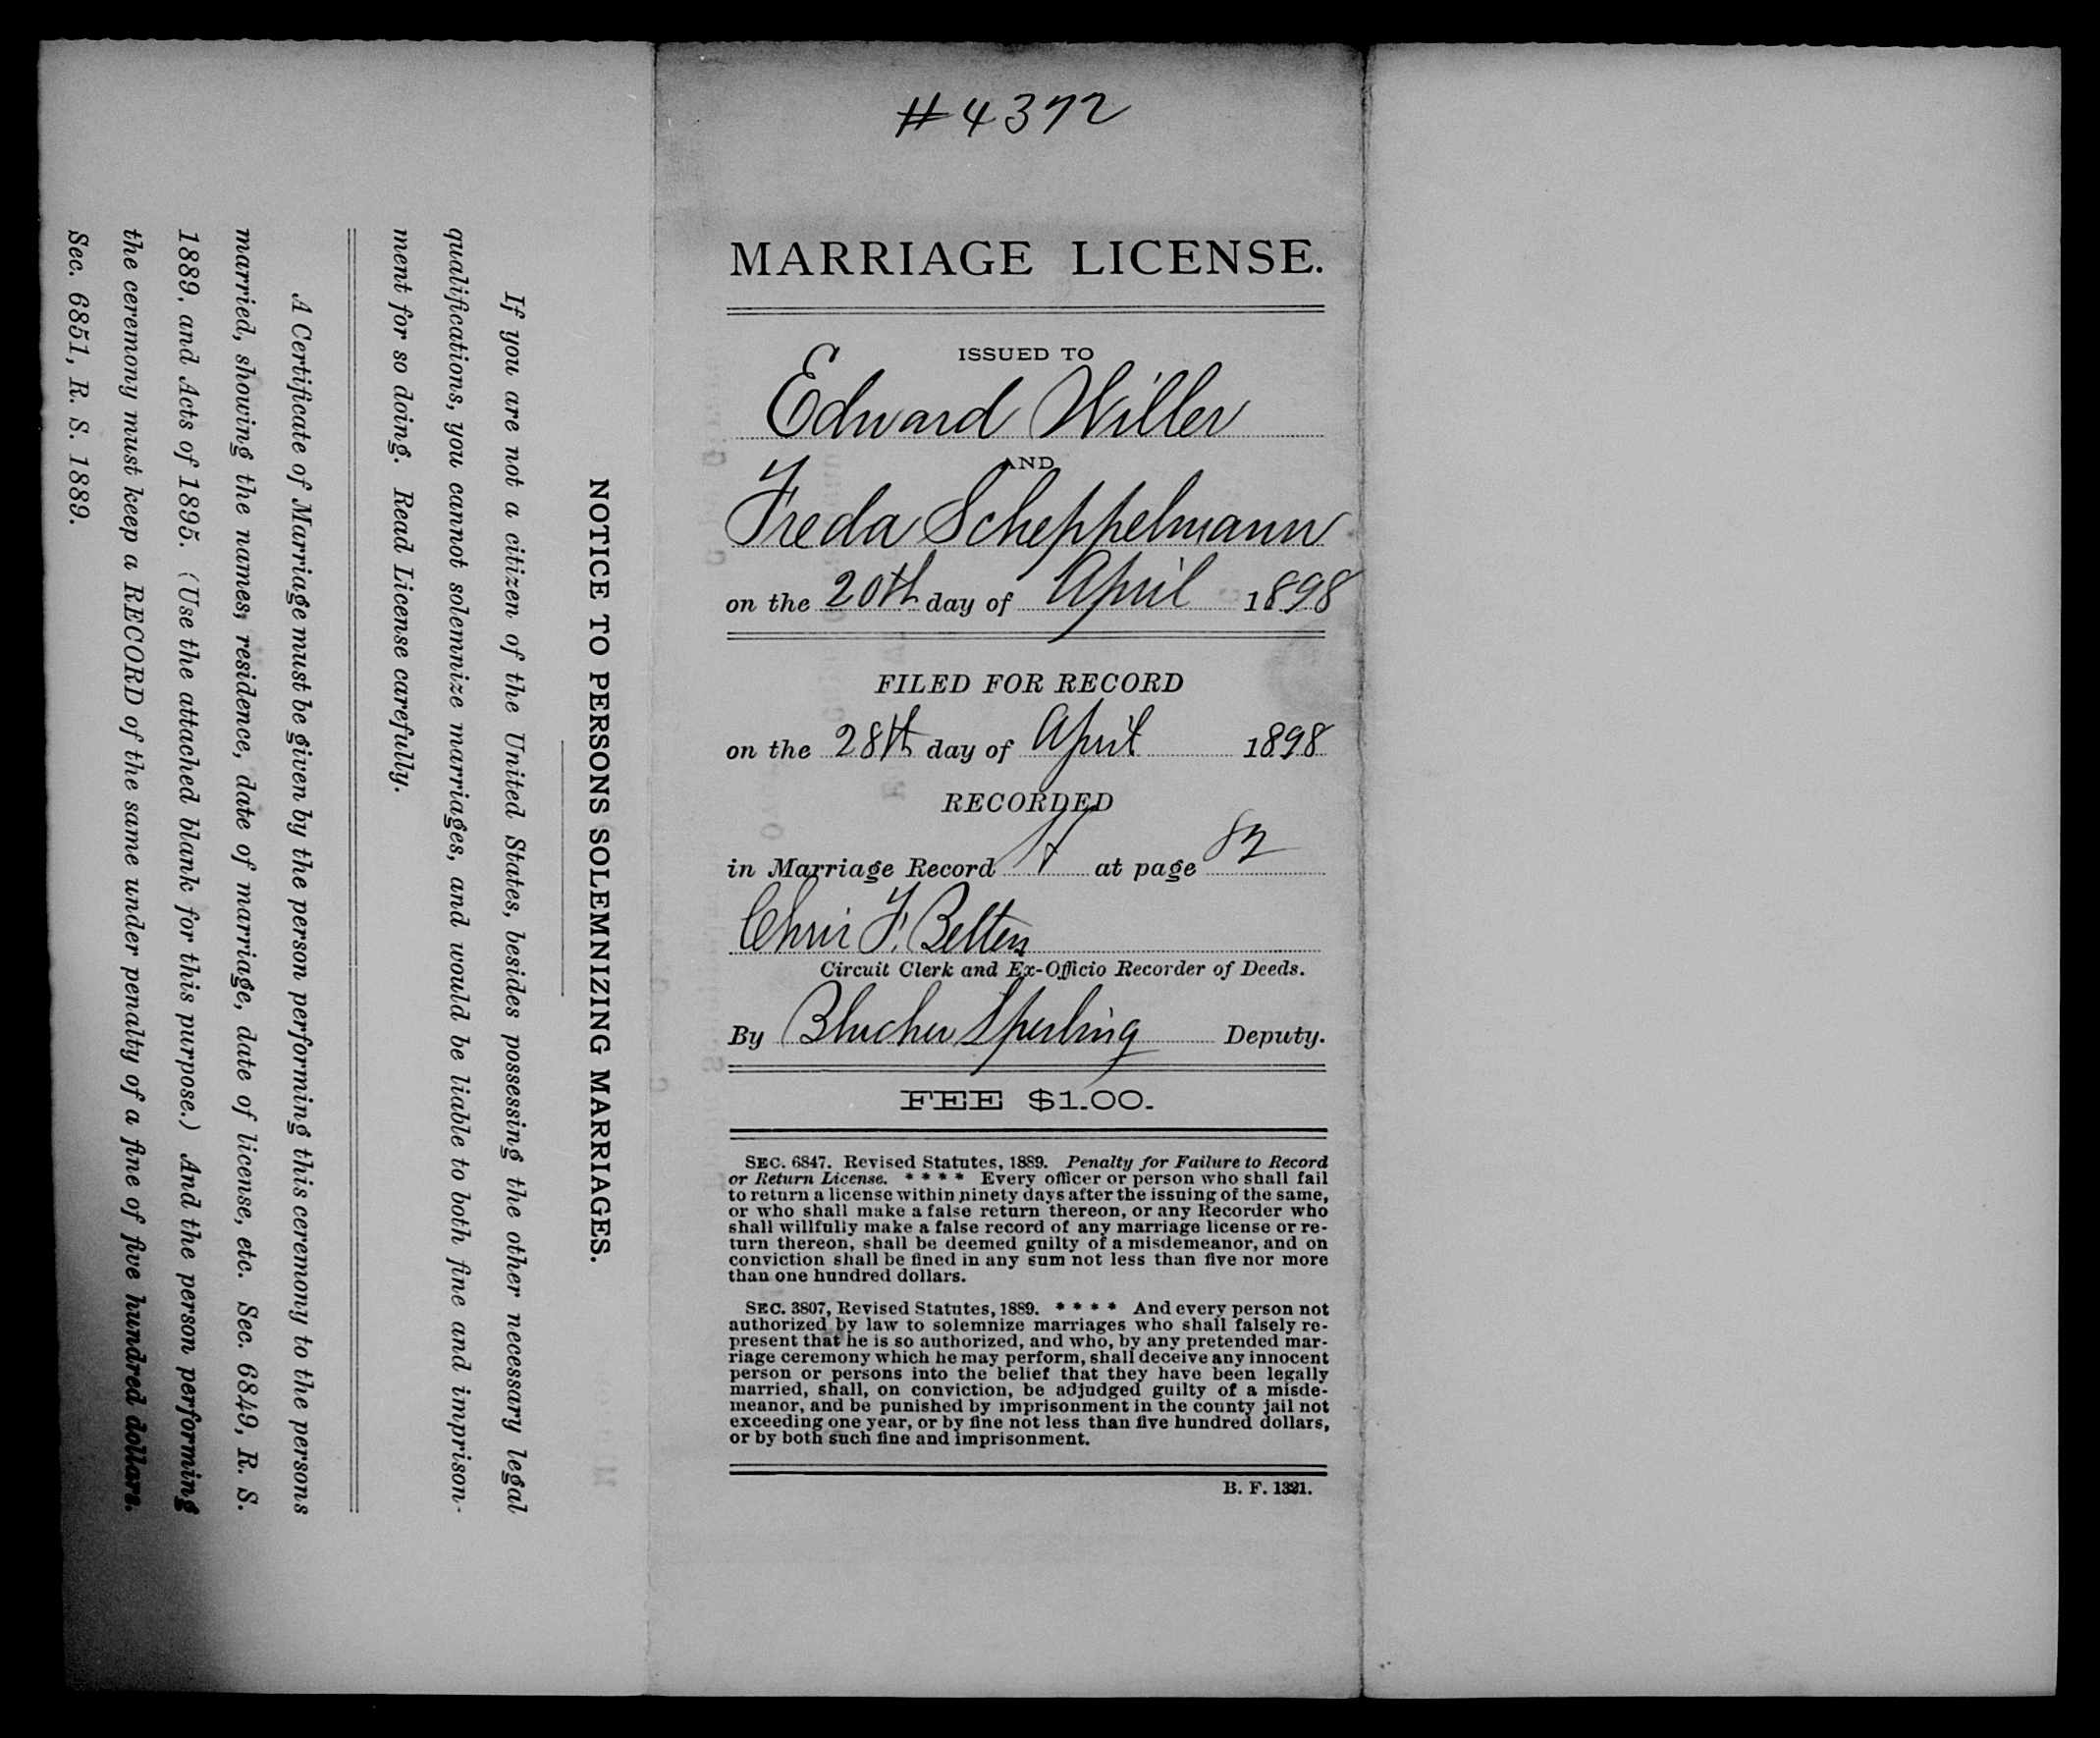 NOTICE TO PERSONS SOLEMNIZING MARRIAGES.
If you are not a citizen of the United States, besides possessing the other necessary legal
qualifications, you cannot solemnize marriages, and would be liable to both fine and imprison-
ment for so doing. Read License carefully.
A Certificate of Marriage must be given by the person performing this ceremony to the persons
married, showing the names, residence, date of marriage, date of license, etc. Sec. 6849, R. S.
1889, and Acts of 1895. (Use the attached blank for this purpose.) And the person performing
the ceremony must keep a RECORD of the same under penalty of a fine of five hundred dollars.
Sec. 6851, R. S. 1889.
#4372
MARRIAGE LICENSE.
ISSUED TO
Edward Willer
AND
Freda Scheppelmann
on the 20th day of April 1898
FILED FOR RECORD
on the 28th day of April 1898
RECORDED
in Marriage Record at page 82
Chris F. Belten
Circuit Clerk and Ex-Officio Recorder of Deeds.
By Blucher Sperling Deputy.
FEE $1.00.
SEC. 6847. Revised Statutes, 1889. Penalty for Failure to Record
or Return License. * * * * Every officer or person who shall fail
to return a license within ninety days after the issuing of the same,
or who shall make a false return thereon, or any Recorder who
shall willfully make a false record of any marriage license or re-
turn thereon, shall be deemed guilty of a misdemeanor, and on
conviction shall be fined in any sum not less than five nor more
than one hundred dollars.
SEC. 3807, Revised Statutes, 1889. * * * * And every person not
authorized by law to solemnize marriages who shall falsely re-
present that he is so authorized, and who, by any pretended mar-
riage ceremony which he may perform, shall deceive any innocent
person or persons into the belief that they have been legally
married, shall, on conviction, be adjudged guilty of a misde-
meanor, and be punished by imprisonment in the county jail not
exceeding one year, or by fine not less than five hundred dollars,
or by both such fine and imprisonment.
B. F. 1321.